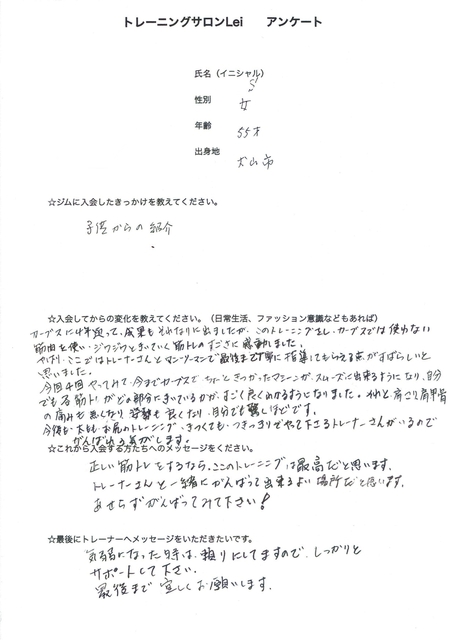 トレーニングサロンLei　アンケート
氏名（イニシャル）
S
性別
女
年齢
55才
出身地
犬山市
☆ジムに入会したきっかけを教えてください。
子供からの紹介
☆入会してからの変化を教えてください。（日常生活、ファッション意識などもあれば）
カーブスに4年通って、成果もそれなりに出ましたが、このトレーニングをし、カーブスでは使わない
筋肉を使い、ジワジワときいていく筋トレのすごさに感動しました。
やはり、ここではトレーナーさんとマンツーマンで最後まで丁寧に指導してもらえる点がすばらしいと
思いました。
今回4回やってみて、今までカーブスでちょっときつかったマシーンが、スムーズに出来るようになり、自分
でも各筋トレがどの部分にきいているかが、すごく良くわかるようになりました。それと肩こり、肩甲骨
の痛みも無くなり、姿勢も良くなり、自分でも驚くほどです。
今後も、太もも、お尻のトレーニング、きつくても、つきっきりでやって下さるトレーナーさんがいるので
がんばれる気がします。
☆これから入会する方たちへのメッセージをください。
正しい筋トレをするなら、ここのトレーニングは最高だと思います。
トレーナーさんと一緒にがんばって出来るよい場所だと思います。
あせらずがんばってみて下さい！
☆最後にトレーナーへメッセージをいただきたいです。
気弱になった時は、頼りにしてますので、しっかりと
サポートして下さい。
最後まで宜しくお願いします。